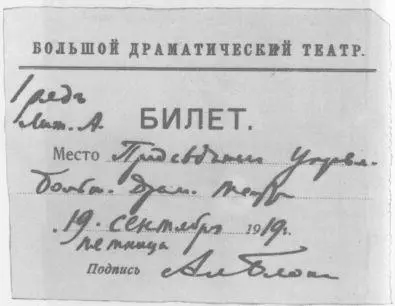 БОЛЬШОЙ ДРАМАТИЧЕСКИЙ ТЕАТР.
1 рядъ
Лит. А.
БИЛЕТ.
Место Управл.
Больш. Драм. театра
19 сентября 1919 г.
пятница
Подпись Ал Блок